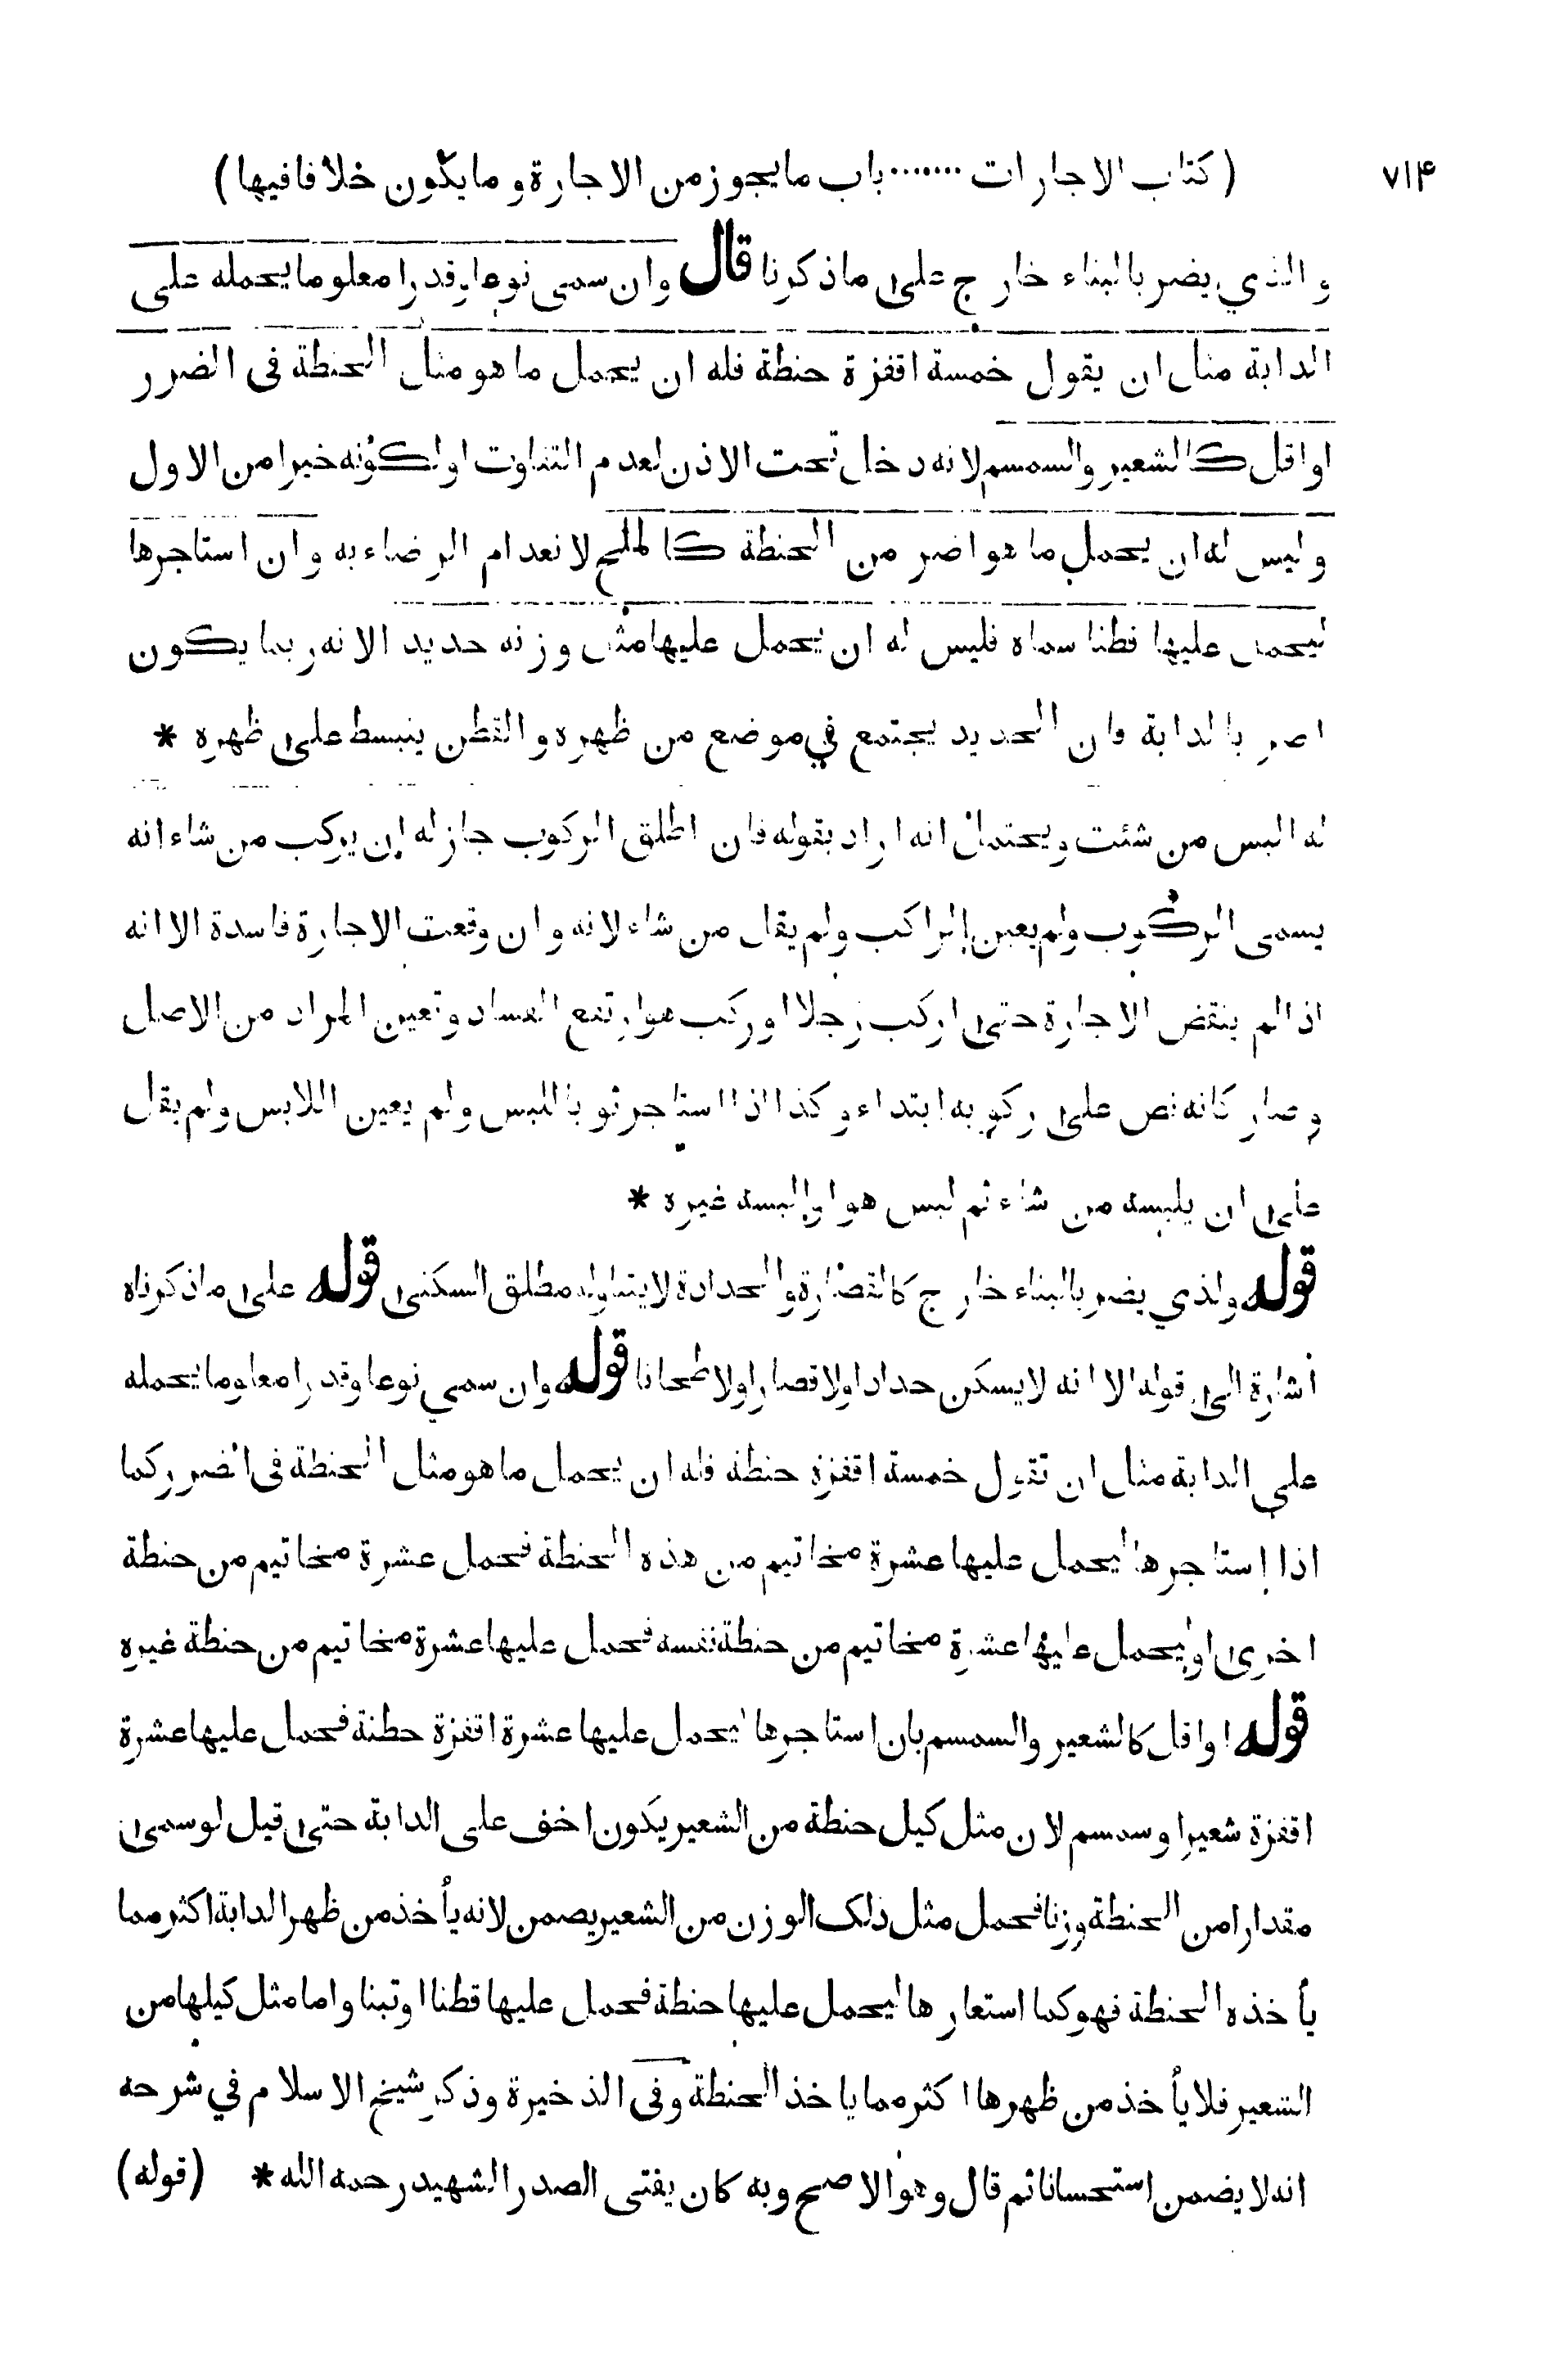 ٧١۴ (كتاب الاجارات ······· باب مايجوز من الاجارة و مايكون خلافا فيها)
والذي يضر بالبناء خارج على ماذكرنا قال وان سمى نوعا وقدرا معلوما يحمله على
الدابة مثل ان يقول خمسة اقفزة حنطة فله ان يحمل ما هو مثل الحنطة فى الضرر
او اقل كالشعير والسمسم لانه دخل تحت الاذن لعدم التفاوت او لكونه خيرا من الاول
وليس له ان يحمل ما هو اضر من الحنطة كالملح لانعدام الرضاء به وان استاجرها
ليحمل عليها قطنا سماه فليس له ان يحمل عليها مثل وزنه حديد الانه ربما يكون
اضر بالدابة فان الحديد يجتمع في موضع من ظهره والقطن ينبسط على ظهره *
له البس من شئت ويحتمل انه اراد بقوله فان اطلق الركوب جاز له ان يركب من شاء انه
يسمى الركوب ولم يعين الراكب ولم يقل من شاء لانه وان وقعت الاجارة فاسدة الا انه
اذا لم ينقض الاجارة حتى اركب رجلا او ركب هو ارتفع الفساد وتعين المراد من الاصل
وصار كانه نص على ركوبه ابتداء وكذا اذا استاجر ثوبا للبس ولم يعين اللابس ولم يقل
على ان يلبسه من شاء ثم لبس هو او البسه غيره *
قوله والذي يضر بالبناء خارج كالقصارة والحدادة لايتناوله مطلق السكنى قوله على ماذكرناه
أشارة الى قوله الا انه لا يسكن حدادا ولا قصارا ولا طحانا قوله وان سمى نوعا وقدرا معلوما يحمله
على الدابة مثل ان تقول خمسة اقفزة حنطة فله ان يحمل ما هو مثل الحنطة فى الضرر كما
اذا استاجرها ليحمل عليها عشرة مخاتيم من هذه الحنطة فحمل عشرة مخاتيم من حنطة
اخرى او ليحمل عليها عشرة مخاتيم من حنطة نفسه فحمل عليها عشرة مخاتيم من حنطة غيره
قوله او اقل كالشعير والسمسم بان استاجرها ليحمل عليها عشرة اقفزة حطنة فحمل عليها عشرة
اقفزة شعيرا وسمسم لان مثل كيل حنطة من الشعير يكون اخف على الدابة حتى قيل لو سمى
مقدارا من الحنطة وزنا فحمل مثل ذلك الوزن من الشعير يضمن لانه يأخذ من ظهر الدابة اكثر مما
يأخذه الحنطة فهو كما استعارها ليحمل عليها حنطة فحمل عليها قطنا او تبنا واما مثل كيلها من
الشعير فلا يأخذ من ظهرها اكثر مما ياخذ الحنطة وفى الذخيرة وذكر شيخ الاسلام في شرحه
انه لا يضمن استحسانا ثم قال وهو الاصح وبه كان يفتى الصدر الشهيد رحمه الله * (قوله)